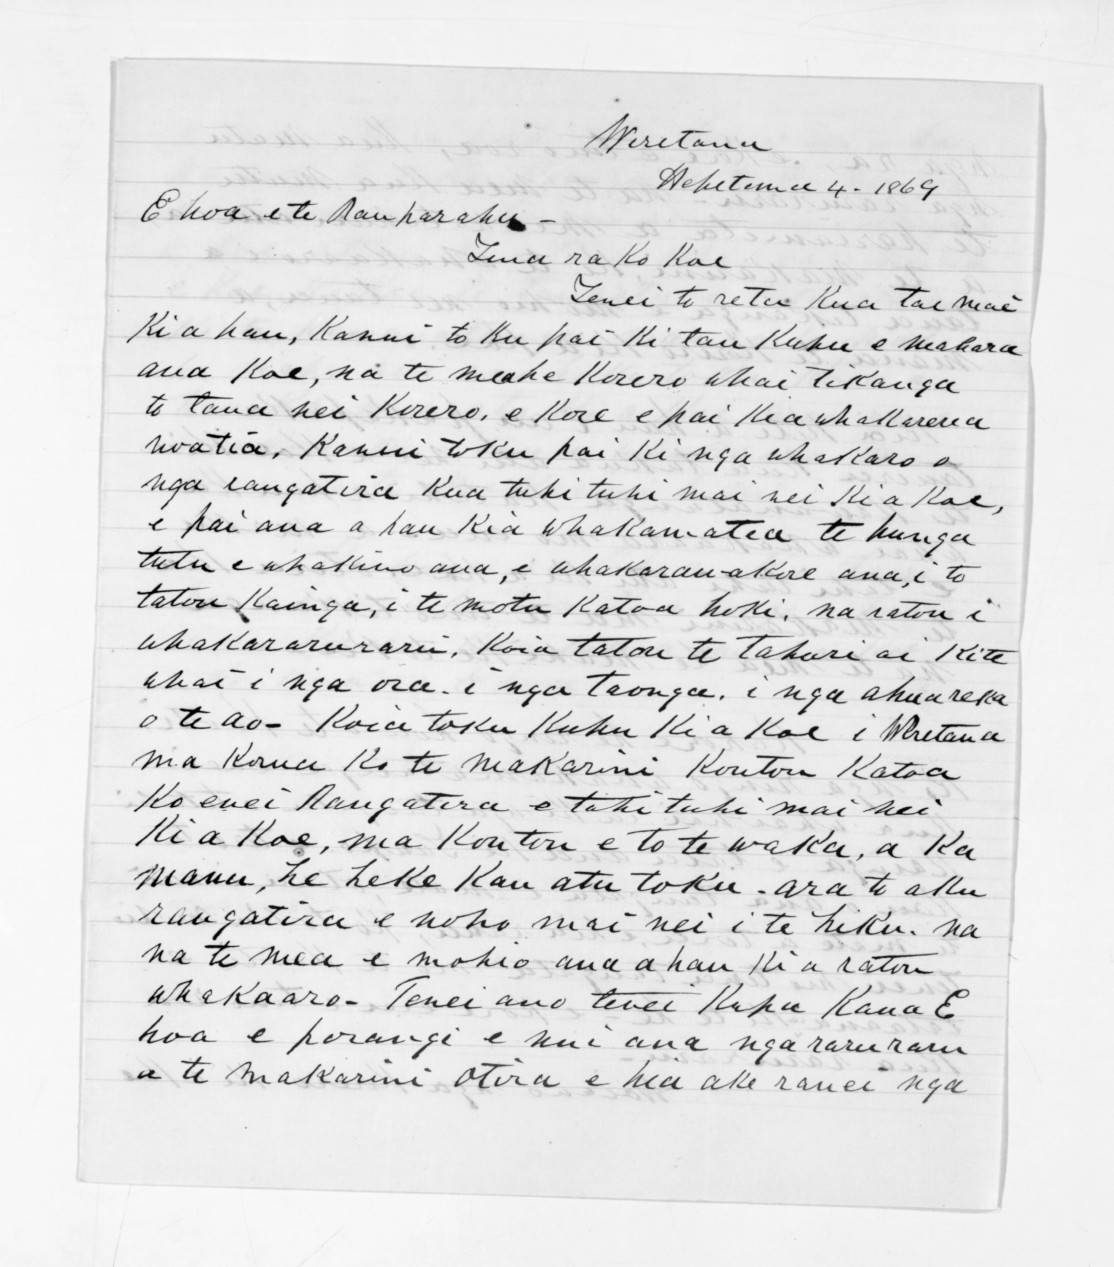 Weretana
Hepetema 4. 1869
E hoa e te Rauparaha -
Tena ra ko koe
Tenei to reta kua tae mai
ki a hau, Kanui to ku pai ki tau kupu e mahara
ana koe, na te meahe Korero whai tikanga
to taua nei Korero. e kore e pai kia whakarerea
noatia. Kanui toku pai ki nga whakaro o
nga rangatira kua tuhi tuhi mai nei ki a koe,
e pai ana a hau kia whakamatea te hunga
tutu e whakino ana, e whakarau-akore ana, i to
tatou kainga, i te motu katoa hoki. na ratou i
whakararuraru. Koia tatou te tahuri ai kite
whai i nga ora. i nga taonga. i nga ahuareka
o te ao - Koia toku kupu ki a koe i Weretana
ma korua ko te Makarini Koutou katoa
ko enei Rangatira e tuhi tuhi mai nei
ki a koe, ma koutou e to te waka, a ka
manu, he heke kau atu toku. ara to aku
rangatira e noho mai nei i te hiku. na
na te mea e mohio ana ahau ki a ratou
whakaaro - Tenei ano tenei kupu kaua E
hoa e porangi e nui ana nga raruraru
a te Makarini otira e hia ake ranei nga